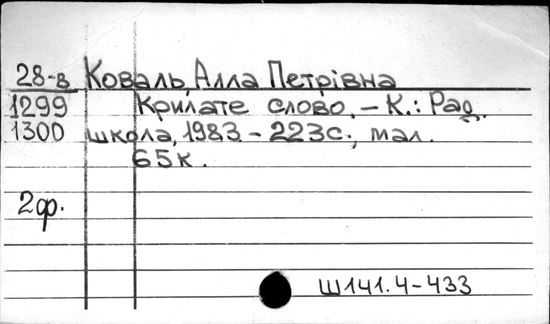 28-в Коваль, Алла Петрівна
1299 Крилате слово. – К.: Рад.
1300 школа, 1983 – 223с., мал.
65к.
2ф.
Ш141.4-433